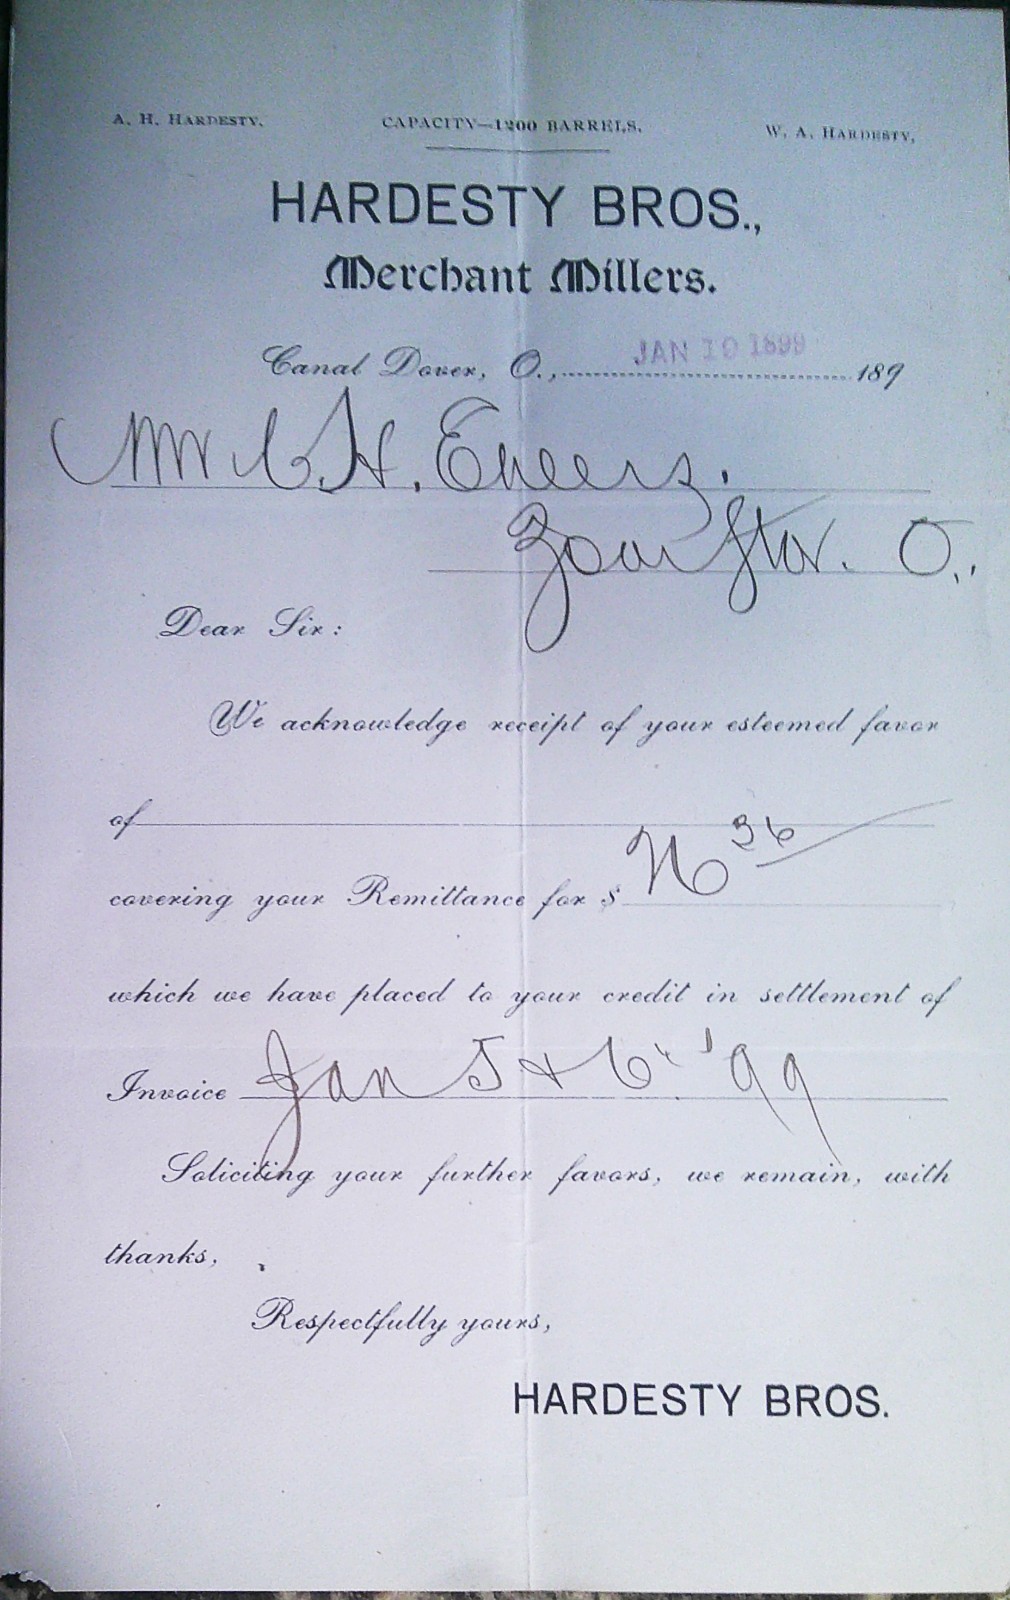 A. H. HARDESTY. CAPACITY—1200 BARRELS. W. A. HARDESTY,
HARDESTY BROS.,
Merchant Millers.
JAN 10 1899
Canal Dover, O., 189
Mr C. H. Eheers.
Zoar Sta. O.,
Dear Sir:
We acknowledge receipt of your esteemed favor
of
36
covering your Remittance for $
which we have placed to your credit in settlement of
Invoice Jan 5 + 6" '99
Soliciting your further favors, we remain, with
thanks,
Respectfully yours,
HARDESTY BROS.